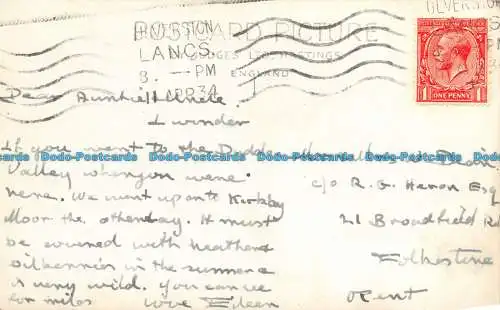 ULVERSTON
LANCS.
8. — PM
APR 34
POSTCARD PICTURE
JUDGES LTD., HASTINGS
ENGLAND
ULVERSTON
ONE PENNY
1 1
Dear Auntie & Uncle
I wonder
if you went to the Duddon
Valley when you were
here. We went up onto Kirkby
Moor the other day. It must
be covered with heather &
bilberries in the summer &
is very wild. You can see
for miles love Eileen
c/o R. G. Heron Esq
21 Broadfield Rd
Folkestone
Kent
Dodo-Postcards Dodo-Postcards Dodo-Postcards Dodo-Postcards Dodo-Postcards